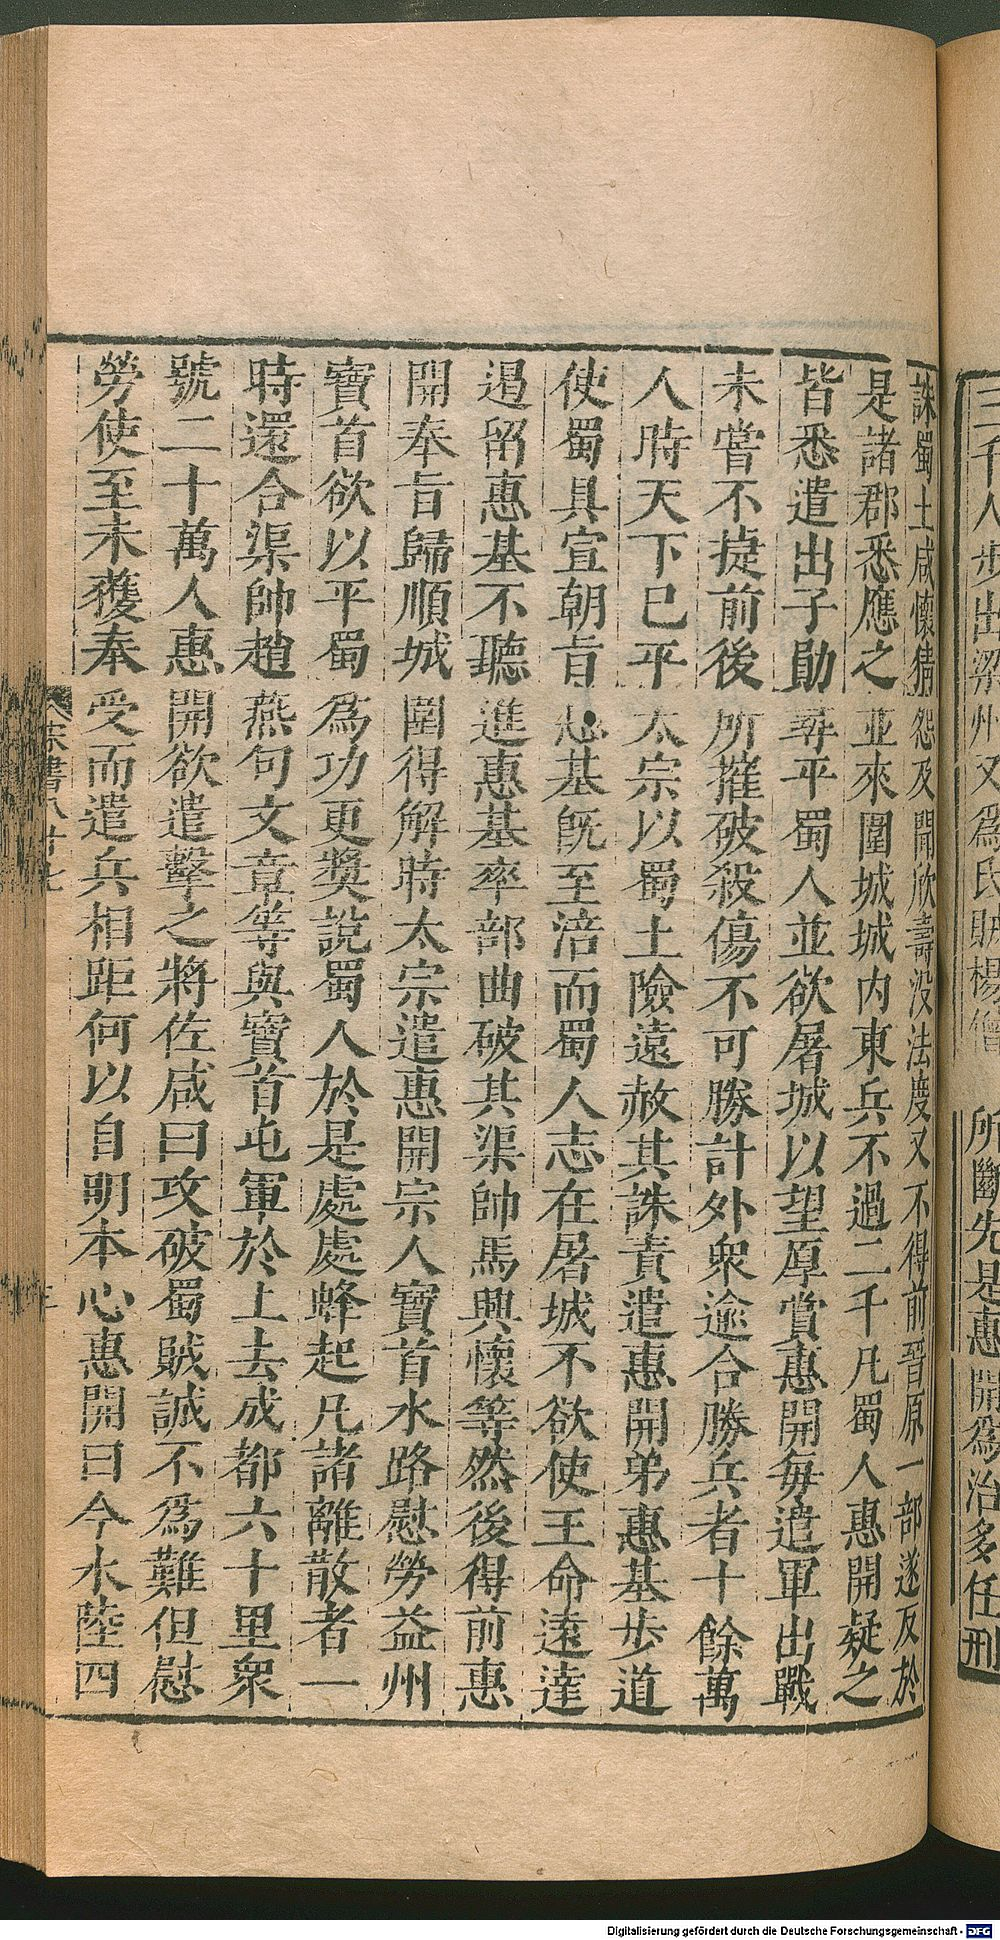 三千人步出梁州又爲氐賊楊僧
所斷先是惠開爲治多任刑
誅蜀土咸懷猜怨及聞欣壽没法度又不得前晉原一部遂反於
是諸郡悉應之並來圍城城内東兵不過二千凡蜀人惠開疑之
皆悉遣出子勛尋平蜀人並欲屠城以望厚賞惠開每遣軍出戰
未嘗不捷前後所摧破殺傷不可勝計外衆逾合勝兵者十餘萬
人時天下已平太宗以蜀土險遠赦其誅責遣惠開弟惠基步道
使蜀具宣朝旨惠基旣至涪而蜀人志在屠城不欲使王命遠達
遏留惠基不聽進惠基率部曲破其渠帥馬興懷等然後得前惠
開奉旨歸順城圍得解時太宗遣惠開宗人寶首水路慰勞益州
寶首欲以平蜀爲功更奬說蜀人於是處處蜂起凡諸離散者一
時還合渠帥趙燕句文章等與寶首屯軍於上去成都六十里衆
號二十萬人惠開欲遣擊之將佐咸曰攻破蜀賊誠不爲難但慰
勞使至未獲奉受而遣兵相距何以自明本心惠開曰今水陸四
宋書八十七
Digitalisierung gefördert durch die Deutsche Forschungsgemeinschaft - DFG